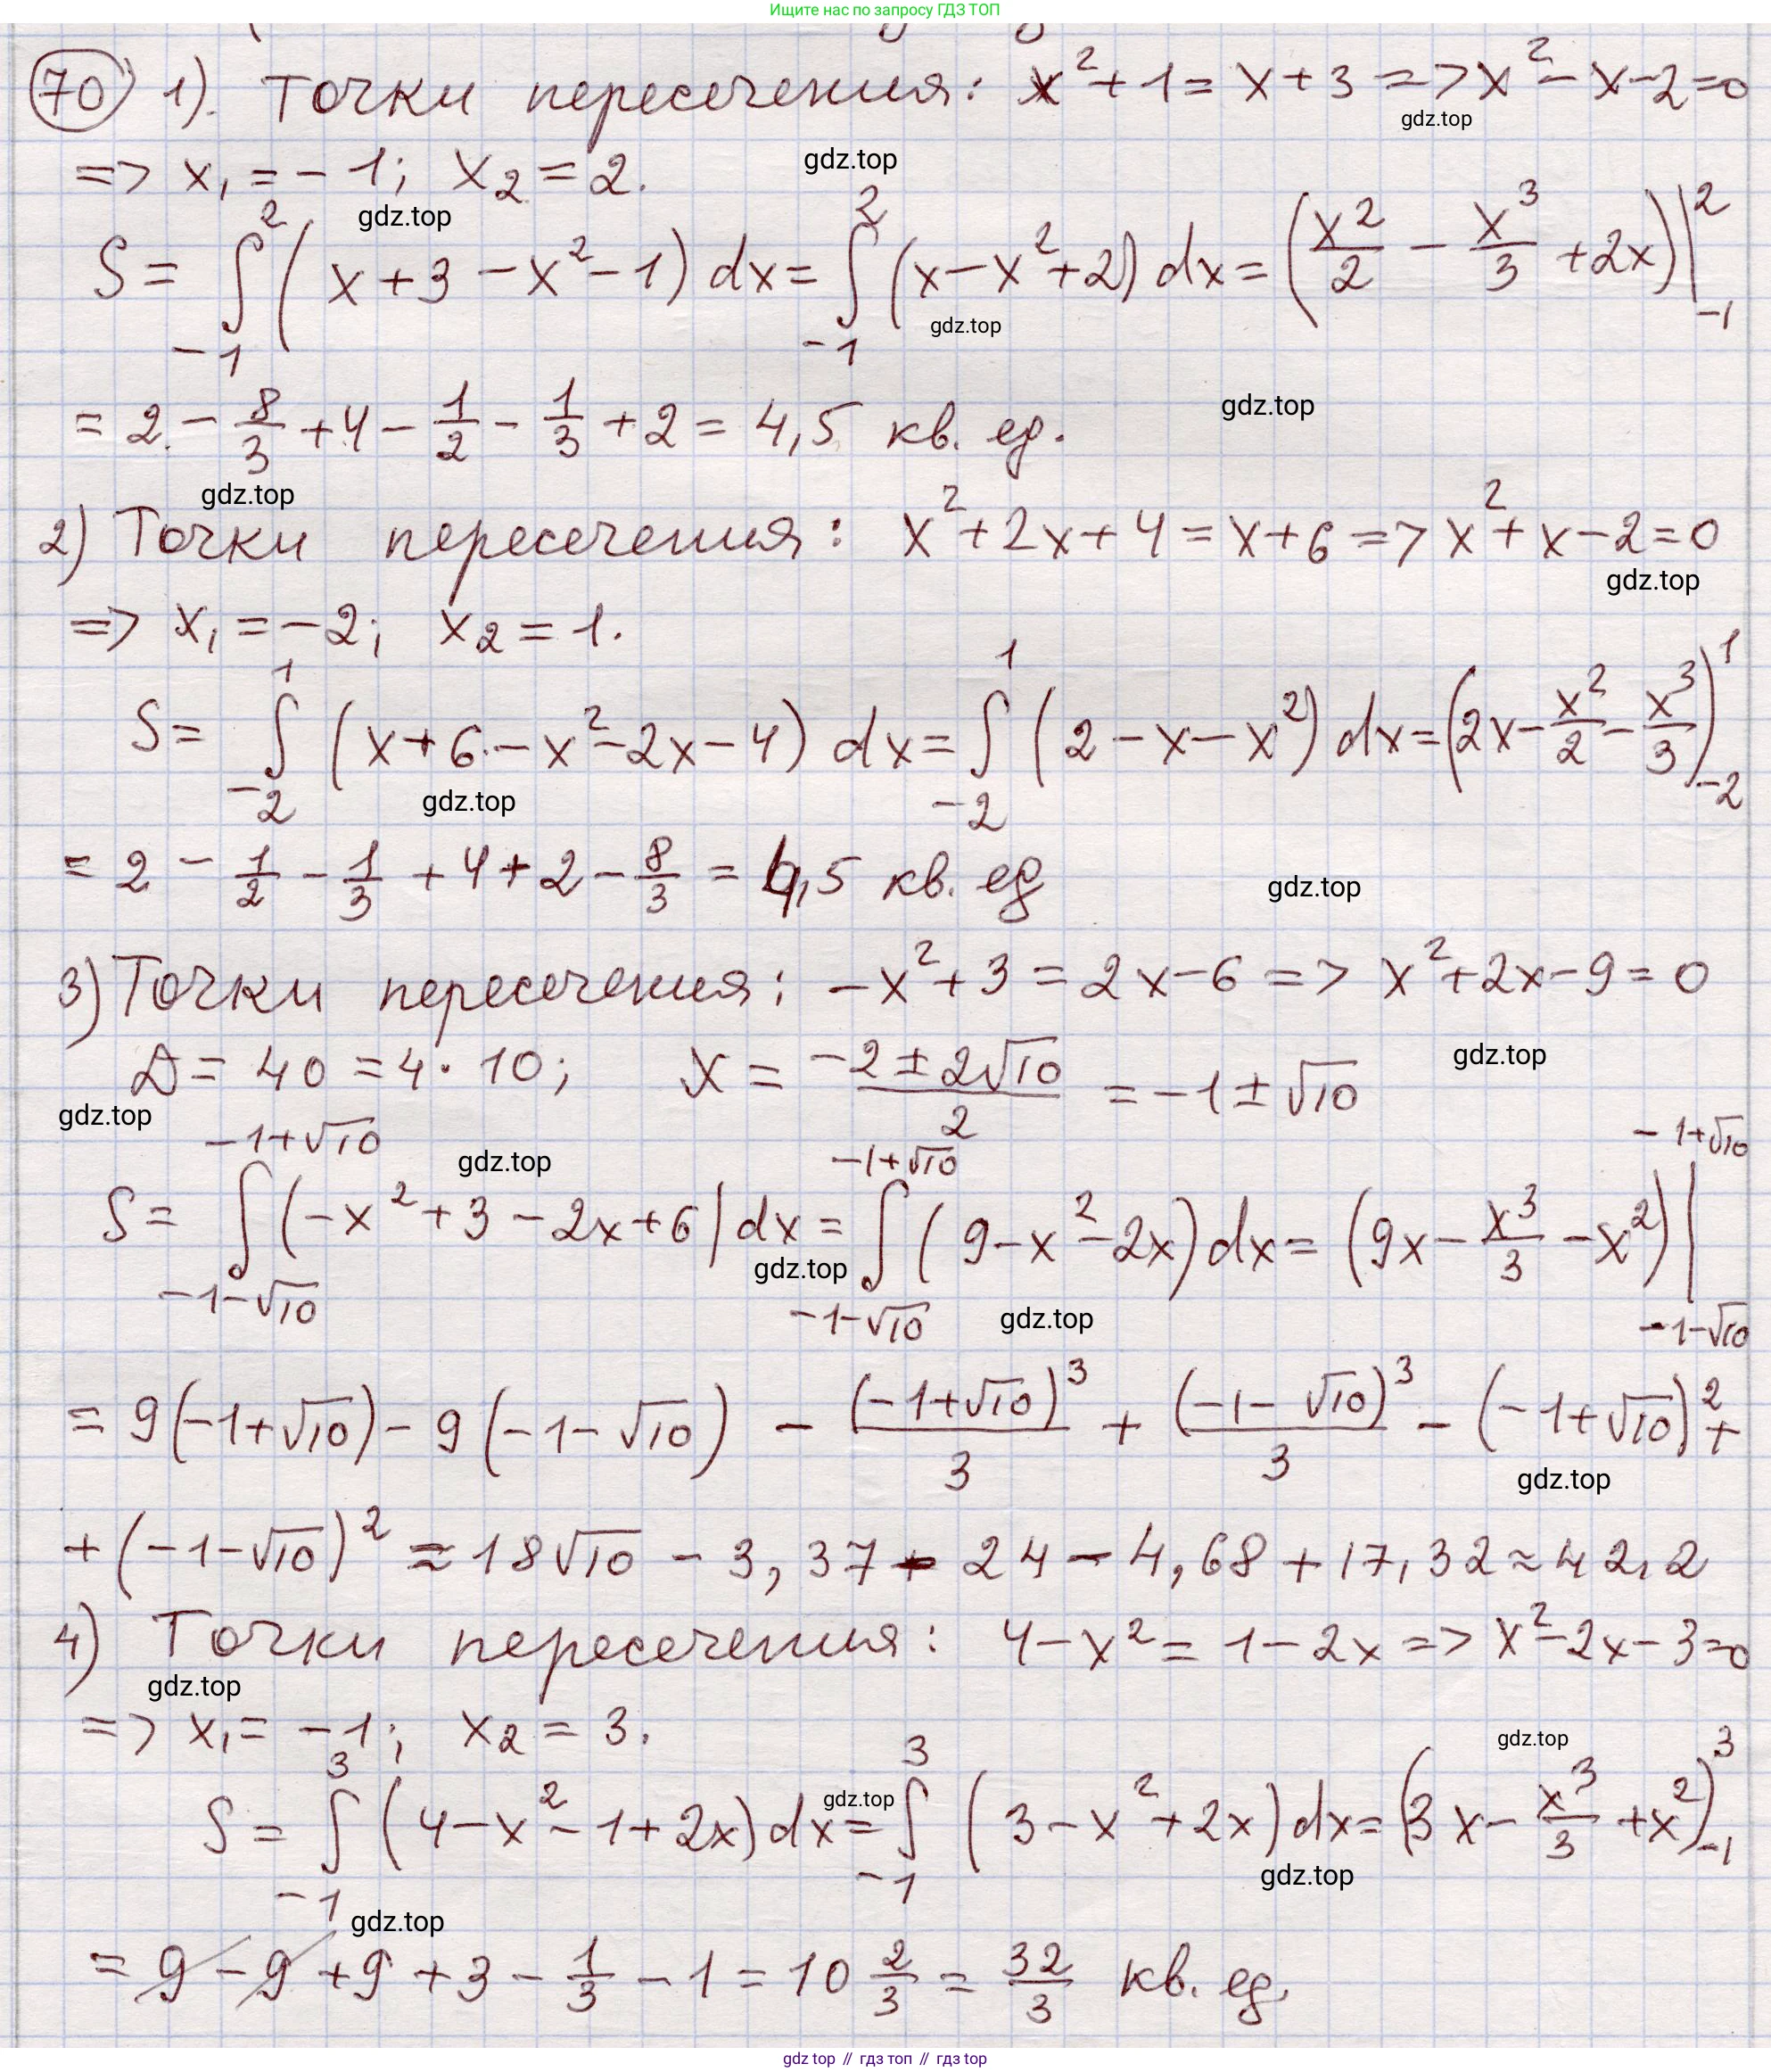 Ищите нас по запросу ГДЗ ТОП
70 1). Точки пересечения: x²+1= x+3 => x²-x-2=0
gdz.top
=> x₁=-1; x₂=2.
gdz.top
gdz.top
S= ∫₋₁² (x+3-x²-1) dx= ∫₋₁² (x-x²+2) dx= (x²/2 - x³/3 +2x)|₋₁²
gdz.top
= 2 - 8/3 +4 - 1/2 - 1/3 +2 = 4,5 кв. ед.
gdz.top
gdz.top
2) Точки пересечения: x²+2x+4=x+6 => x²+x-2=0
gdz.top
=> x₁=-2; x₂=1.
S= ∫₋₂¹ (x+6-x²-2x-4) dx= ∫₋₂¹ (2-x-x²) dx= (2x- x²/2 - x³/3)₋₂¹
gdz.top
= 2 - 1/2 - 1/3 +4+2- 8/3 = 4,5 кв. ед
gdz.top
3) Точки пересечения: -x²+3=2x-6 => x²+2x-9=0
D=40=4·10; x= (-2±2√10)/2 =-1±√10
gdz.top
gdz.top
gdz.top
S= ∫₋₁₋√₁₀^(-1+√10) (-x²+3-2x+6| dx= ∫₋₁₋√₁₀^(-1+√10) (9-x²-2x) dx= (9x- x³/3 -x²)|₋₁₋√₁₀^(-1+√10)
gdz.top
gdz.top
= 9(-1+√10)-9(-1-√10) - (-1+√10)³/3 + (-1-√10)³/3 - (-1+√10)²+
gdz.top
+(-1-√10)² ≈ 18√10 - 3,37 - 24 - 4,68+17,32≈42,2
4) Точки пересечения: 4-x²=1-2x => x²-2x-3=0
gdz.top
=> x₁=-1; x₂=3.
gdz.top
gdz.top
S= ∫₋₁³ (4-x²-1+2x) dx= ∫₋₁³ (3-x²+2x) dx= (3x- x³/3 +x²)₋₁³
gdz.top
gdz.top
= 9-9+9+3- 1/3 -1=10 2/3 = 32/3 кв. ед.
gdz top // гдз топ // gdz.top